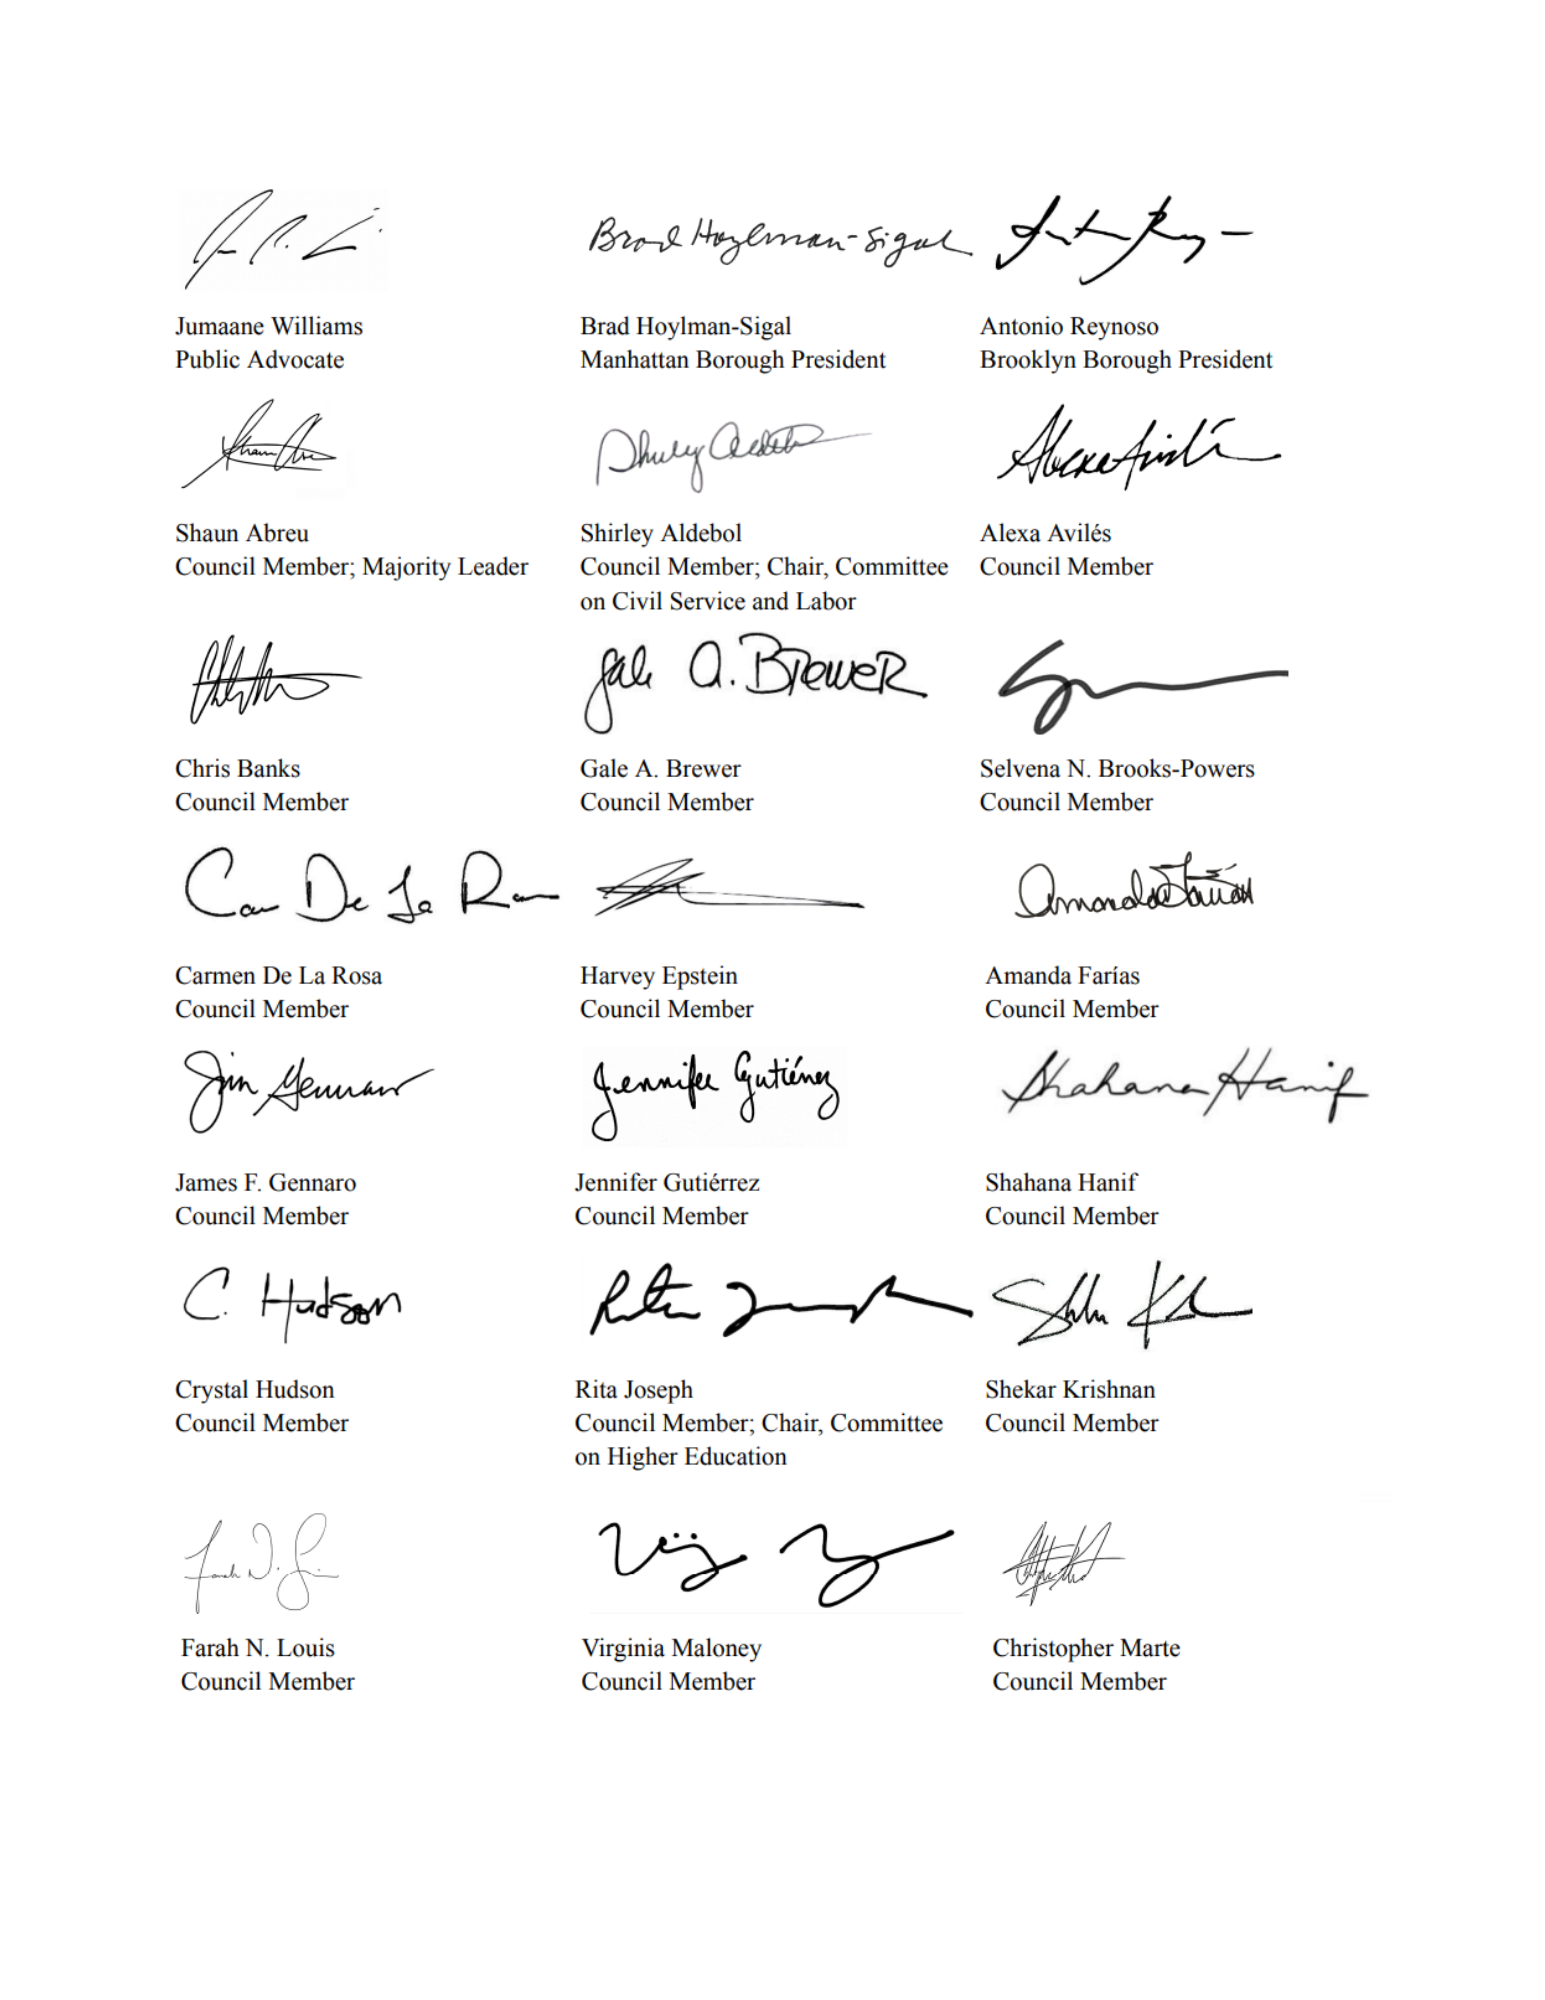 Brad Hoylman-Sigal
Jumaane Williams
Public Advocate
Brad Hoylman-Sigal
Manhattan Borough President
Antonio Reynoso
Brooklyn Borough President
Shaun Abreu
Council Member; Majority Leader
Shirley Aldebol
Council Member; Chair, Committee
on Civil Service and Labor
Alexa Avilés
Council Member
Gale A. Brewer
Chris Banks
Council Member
Gale A. Brewer
Council Member
Selvena N. Brooks-Powers
Council Member
De La
Amanda Farías
Carmen De La Rosa
Council Member
Harvey Epstein
Council Member
Amanda Farías
Council Member
Jim Gennaro
Jennifer Gutiérrez
Shahana Hanif
James F. Gennaro
Council Member
Jennifer Gutiérrez
Council Member
Shahana Hanif
Council Member
C. Hudson
Crystal Hudson
Council Member
Rita Joseph
Council Member; Chair, Committee
on Higher Education
Shekar Krishnan
Council Member
Farah N. Louis
Council Member
Virginia Maloney
Council Member
Christopher Marte
Council Member